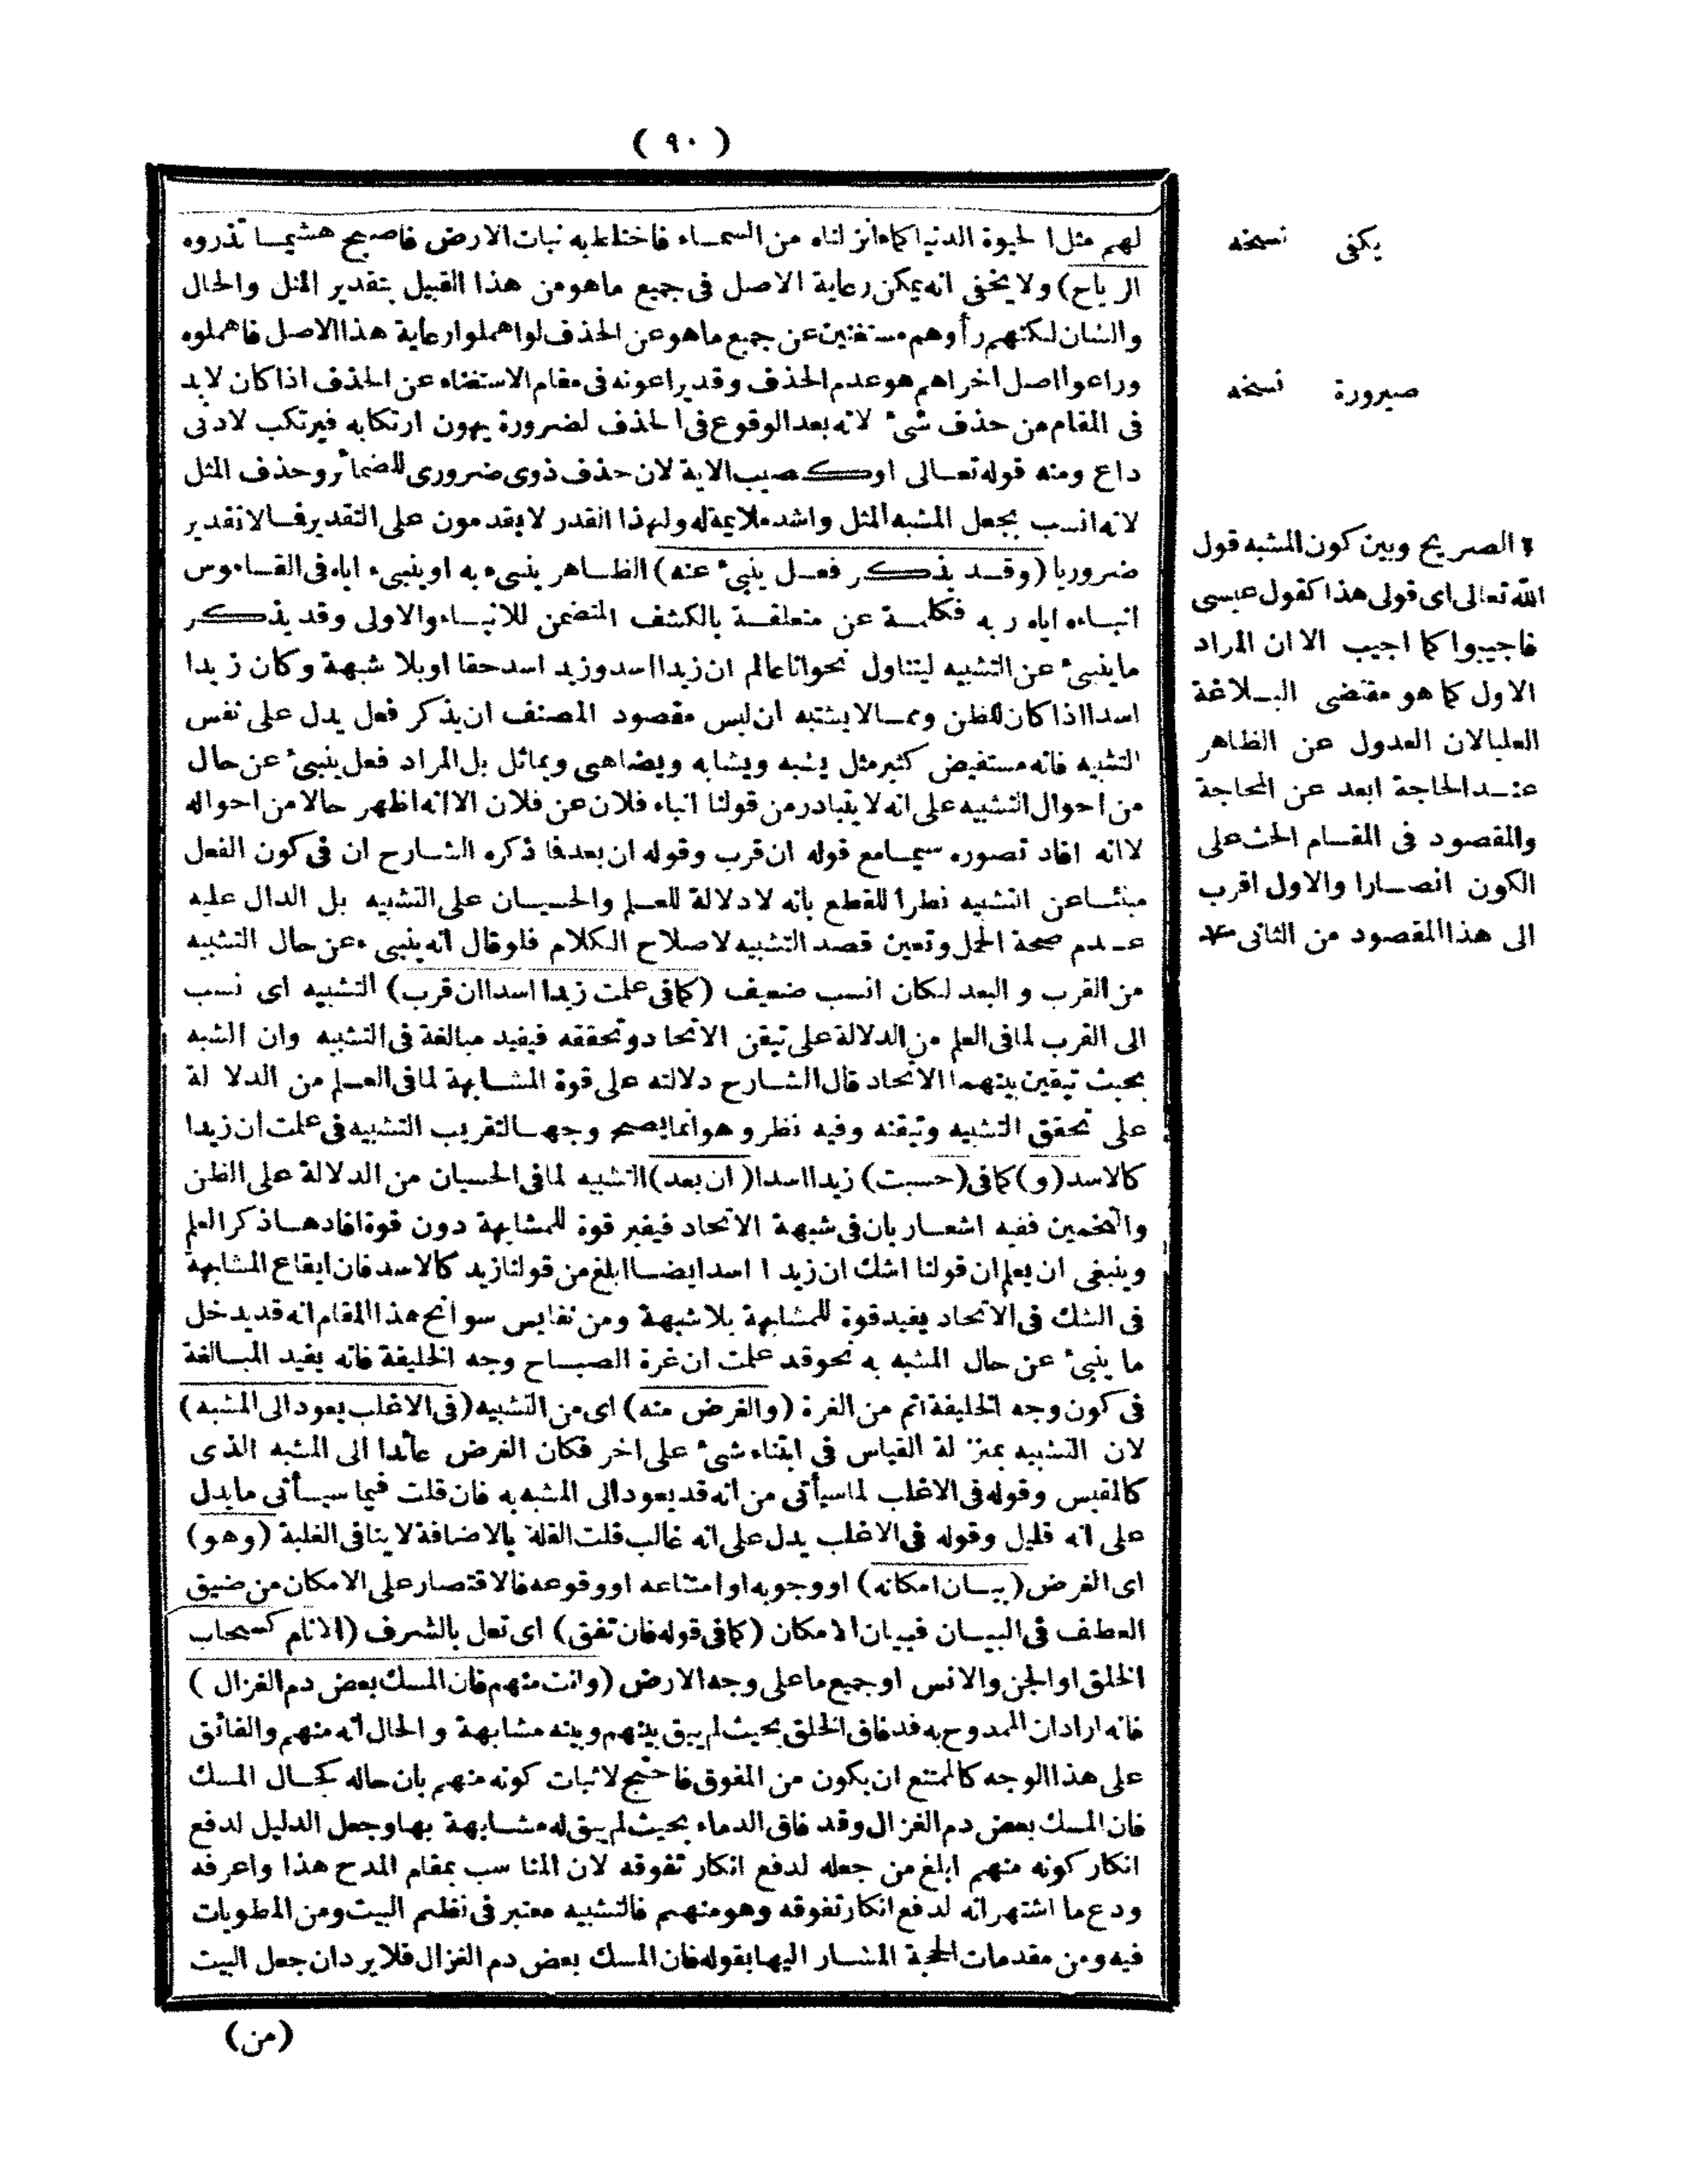 ( ٩٠ )
لهم مثل الحيوة الدنيا كماء انزلناه من السماء فاختلط به نبات الارض فاصبح هشيما تذروه
الرياح) ولا يخفى انه يمكن رعاية الاصل فى جميع ماهو من هذا القبيل بتقدير المثل والحال
والشان لكنهم رأوهم مستغنين عن جميع ماهو عن الحذف لو اهملوا رعاية هذا الاصل فاهملوه
وراعوا اصل اخراهم هو عدم الحذف وقد يراعونه فى مقام الاستغناء عن الحذف اذا كان لابد
فى المقام من حذف شئ لانه بعد الوقوع فى الحذف لضرورة يهون ارتكابه فيرتكب لادنى
داع ومنه قوله تعالى او كصيب الاية لان حذف ذوى ضرورى للضمائر وحذف المثل
لانه انسب بجعل المشبه المثل واشد ملايمة له ولهذا القدر لا يقدمون على التقدير فالا تقدير
ضروريا (وقد يذكر فعل ينبئ عنه) الظاهر ينبئ به او ينبئ اياه فى القاموس
انباءه اياه وبه فكلمة عن متعلقة بالكشف المتضمن للانباء والاولى وقد يذكر
ما ينبئ عن التشبيه ليتناول نحو انا عالم ان زيدا اسد وزيد اسد حقا او بلا شبهة وكان زيدا
اسدا اذا كان للظن ومما لا يشتبه ان ليس مقصود المصنف ان يذكر فعل يدل على نفس
التشبيه فانه مستفيض كثير مثل يشبه ويشابه ويضاهى ويماثل بل المراد فعل ينبئ عن حال
من احوال التشبيه على انه لا يتبادر من قولنا انباء فلان عن فلان الا انه اظهر حالا من احواله
لا انه افاد تصوره سيما مع قوله ان قرب وقوله ان بعد فما ذكره الشارح ان فى كون الفعل
منبئا عن التشبيه نظرا للقطع بانه لا دلالة للعلم والحسبان على التشبيه بل الدال عليه
عدم صحة الحمل وتعين قصد التشبيه لاصلاح الكلام فلو قال انه ينبئ عن حال التشبيه
من القرب و البعد لكان انسب ضعيف (كما فى علمت زيدا اسدا ان قرب) التشبيه اى نسب
الى القرب لما فى العلم من الدلالة على تيقن الاتحاد وتحققه فيفيد مبالغة فى التشبيه وان الشبه
بحيث تيقين بينهما الاتحاد قال الشارح دلالته على قوة المشابهة لما فى العلم من الدلا لة
على تحقق التشبيه وتيقنه وفيه نظر وهو انما يصح وجها لتقريب التشبيه فى علمت ان زيدا
كالاسد (و) كما فى (حسبت) زيدا اسدا (ان بعد) التشبيه لما فى الحسبان من الدلالة على الظن
والتخمين ففيه اشعار بان فى شبهة الاتحاد فيفير قوة للمشابهة دون قوة افادها ذكر العلم
وينبغى ان يعلم ان قولنا اشك ان زيدا اسد ايضا ابلغ من قولنا زيد كالاسد فان ايقاع المشابهة
فى الشك فى الاتحاد يفيد قوة للمشابهة بلا شبهة ومن نفايس سوانح هذا المقام انه قد يدخل
ما ينبئ عن حال المشبه به نحو قد علمت ان غرة الصباح وجه الخليفة فانه يفيد المبالغة
فى كون وجه الخليفة اتم من الغرة (والغرض منه) اى من التشبيه (فى الاغلب يعود الى المشبه)
لان التشبيه بمنزلة القياس فى ابتناء شئ على اخر فكان الغرض عائدا الى المشبه الذى
كالمقيس وقوله فى الاغلب لما سيأتى من انه قد يعود الى المشبه به فان قلت فيما سيأتى مايدل
على انه قليل وقوله فى الاغلب يدل على انه غالب قلت القلة بالاضافة لا ينافى الغلبة (وهو)
اى الغرض (بيان امكانه) او وجوبه او امتناعه او وقوعه فالاقتصار على الامكان من ضيق
العطف فى البيان فبيان الامكان (كما فى قوله فان تفق) اى تعل بالشرف (الانام كسحاب
الخلق او الجن والانس او جميع ما على وجه الارض (وانت منهم فان المسك بعض دم الغزال )
فانه اراد ان الممدوح به قد فاق الخلق بحيث لم يبق بينهم وبينه مشابهة و الحال انه منهم والفائق
على هذا الوجه كالممتنع ان يكون من المفوق فاحتيج لاثبات كونه منهم بان حاله كحال المسك
فان المسك بعض دم الغزال وقد فاق الدماء بحيث لم يبق له مشابهة بها وجعل الدليل لدفع
انكار كونه منهم ابلغ من جعله لدفع انكار تفوقه لان المناسب بمقام المدح هذا واعرفه
ودع ما اشتهر انه لدفع انكار تفوقه وهو منهم فالتشبيه معتبر فى نظم البيت ومن المطويات
فيه ومن مقدمات الحجة المشار اليها بقوله فان المسك بعض دم الغزال فلا يرد ان جعل البيت
(من)
يكفى نسخه
صيرورة نسخه
الصريح وبين كون المشبه قول
الله تعالى اى قولى هذا كقول عيسى
فاجيبوا كما اجيب الا ان المراد
الاول كما هو مقتضى البلاغة
العليا لان العدول عن الظاهر
عند الحاجة ابعد عن المحاجة
والمقصود فى المقام الحث على
الكون انصارا والاول اقرب
الى هذا المقصود من الثانى